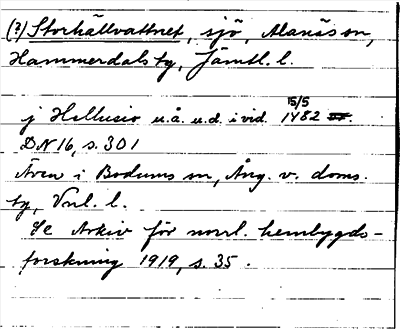 (?) Storhällvattnet, sjö, Alanäs sn,
Hammerdals tg, Jämtl. l.
j Hellusio u.å. u.d. i vid. 15/5 1482
DN 16, s. 301
Även i Bodums sn, Ång. v. doms.
tg, Vnl. l.
Se Arkiv för norrl. hembygds-
forskning 1919, s. 35.